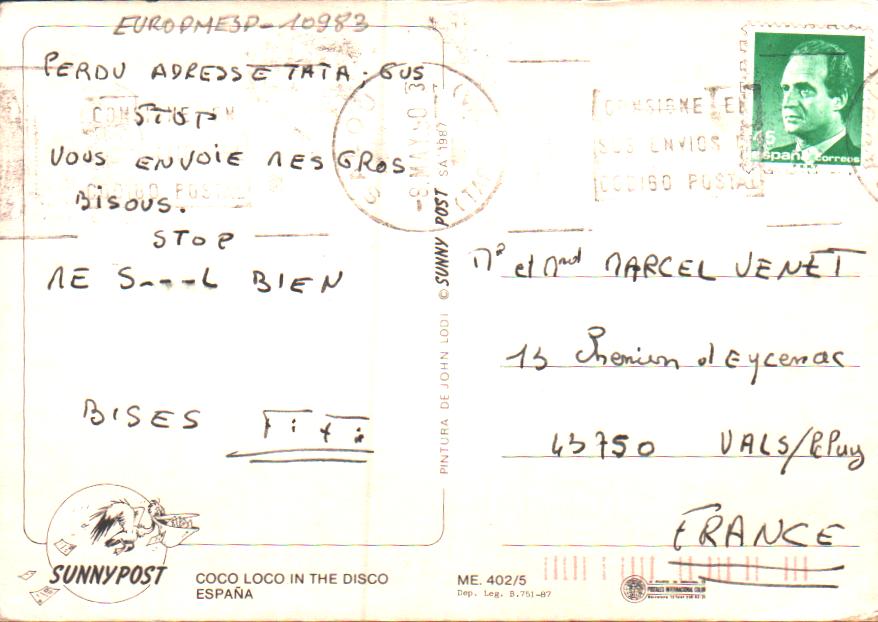 EUROPMESP-10983
PERDU ADRESSE TATA; GUS
STOP
VOUS ENVOIE MES GROS
BISOUS.
STOP
ME S---L BIEN
BISES FiFi
CONSIGNE EN
SUS ENVIOS
CODIGO POSTAL
España correos
Mr et Mme MARCEL VENET
13 Chemin d'Eycenac
43750 VALS/P.Puy
FRANCE
PINTURA DE JOHN LODI © SUNNY POST SA 1987
SUNNYPOST
COCO LOCO IN THE DISCO
ESPAÑA
ME. 402/5
Dep. Leg. B.751-87
POSTALES INTERNACIONAL COLOR